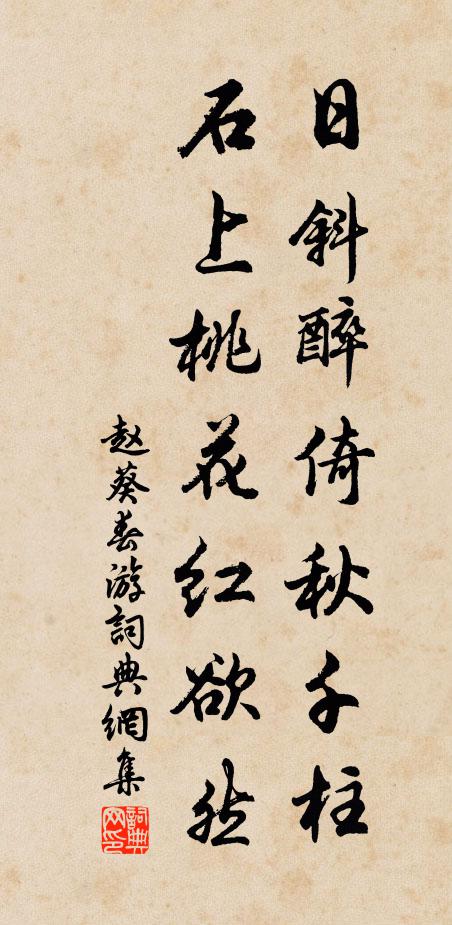 日斜醉倚秋千柱
石上桃花红欲然
赵葵春游詞典網集
詞典
网印